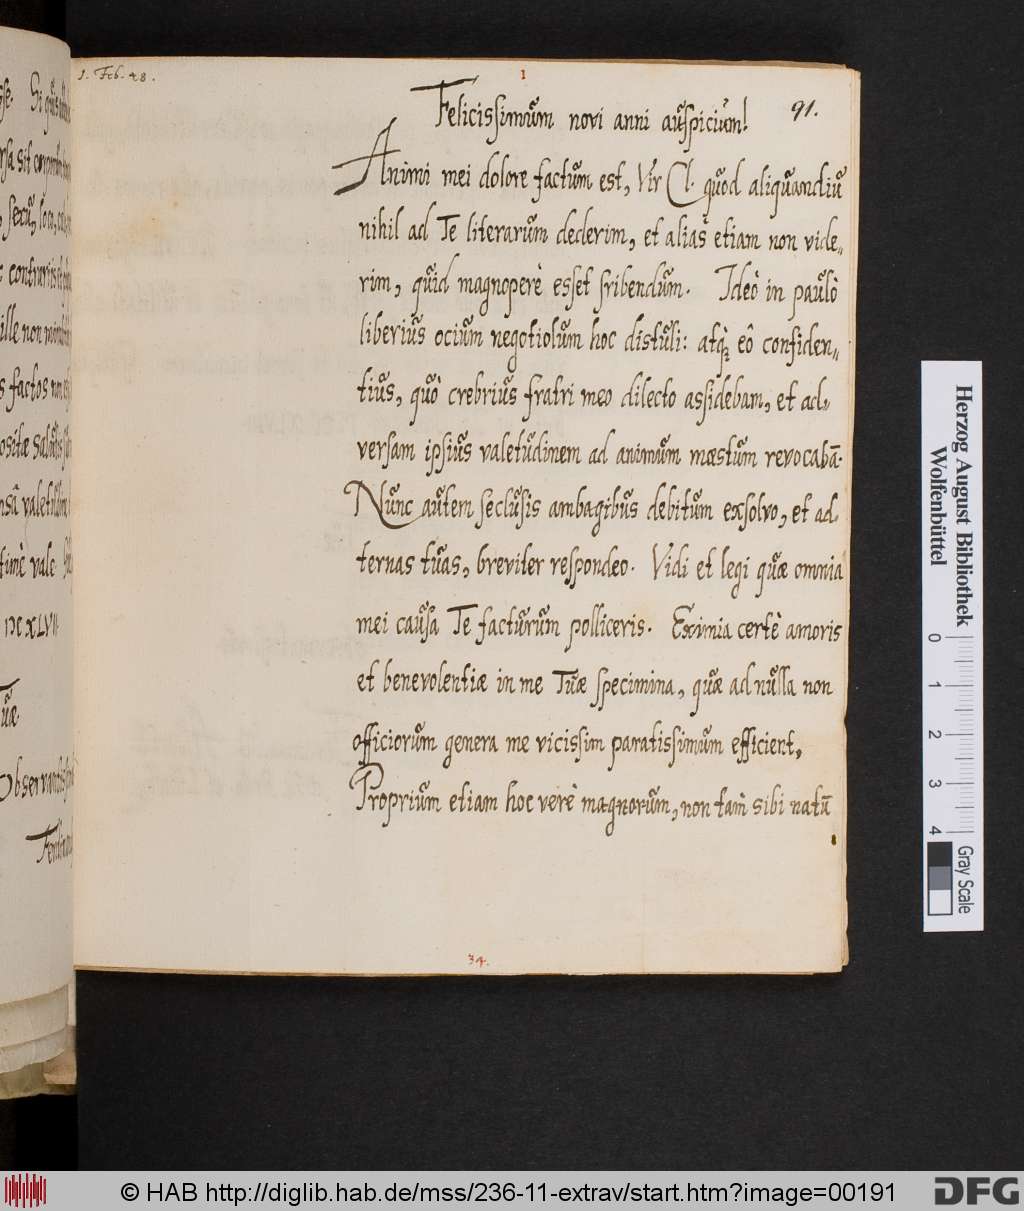 1. Feb. 48.
1
91.
Felicissimum novi anni auspicium!
Animi mei dolore factum est, Vir Cl. quod aliquandiu
nihil ad Te literarum dederim, et alias etiam non vide„
rim, quid magnoperè esset sribendum. Ideò in paulò
liberius ocium negotiolum hoc distuli: atq; eô confiden„
tius, quò crebrius fratri meo dilecto assidebam, et ad„
versam ipsius valetudinem ad animum mæstum revocabā.
Nunc autem seclusis ambagibus debitum exsolvo, et ad
ternas tuas, breviter respondeo. Vidi et legi quæ omnia
mei causa Te facturum polliceris. Eximia certè amoris
et benevolentiæ in me Tuæ specimina, quæ ad nulla non
officiorum genera me vicissim paratissimum efficient,
Proprium etiam hoc verè magnorum, non tam sibi natū
34.
ille non
s factos non
DCXLVII
uæ
Herzog August Bibliothek
Wolfenbüttel
0 1 2 3 4
Gray Scale
© HAB http://diglib.hab.de/mss/236-11-extrav/start.htm?image=00191
DFG